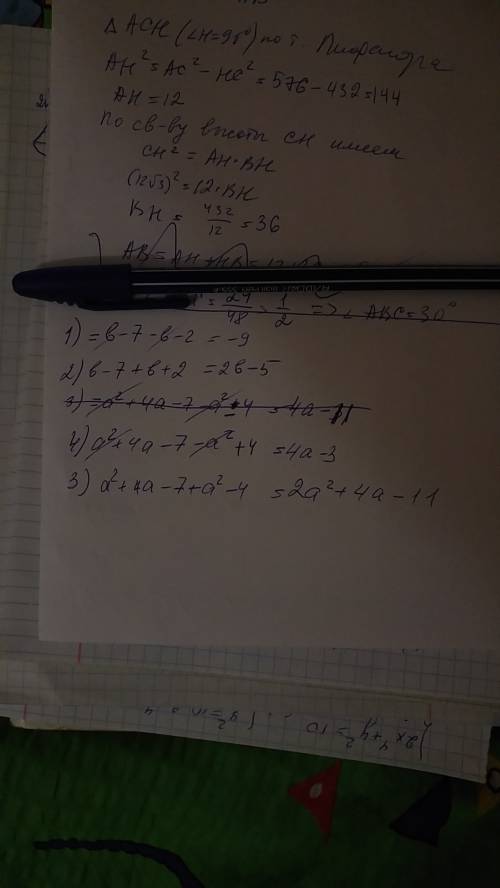 Δ ACH (∠H=90°) по т. Пифагора
AH² = AC² - HC² = 576 - 432 = 144
AH = 12
По св-ву высоты CH имеем
CH² = AH · BH
(12√3)² = 12 · BH
BH = 432/12 = 36
AB = AH + HB =
= 24/48 = 1/2 => ∠ ABC = 30°
1) = в - 7 - в - 2 = -9
2) в - 7 + в + 2 = 2в - 5
3) = a² + 4a - 7 - a² - 4 = 4a - 11
4) a² + 4a - 7 - a² + 4 = 4a - 3
3) a² + 4a - 7 + a² - 4 = 2a² + 4a - 11